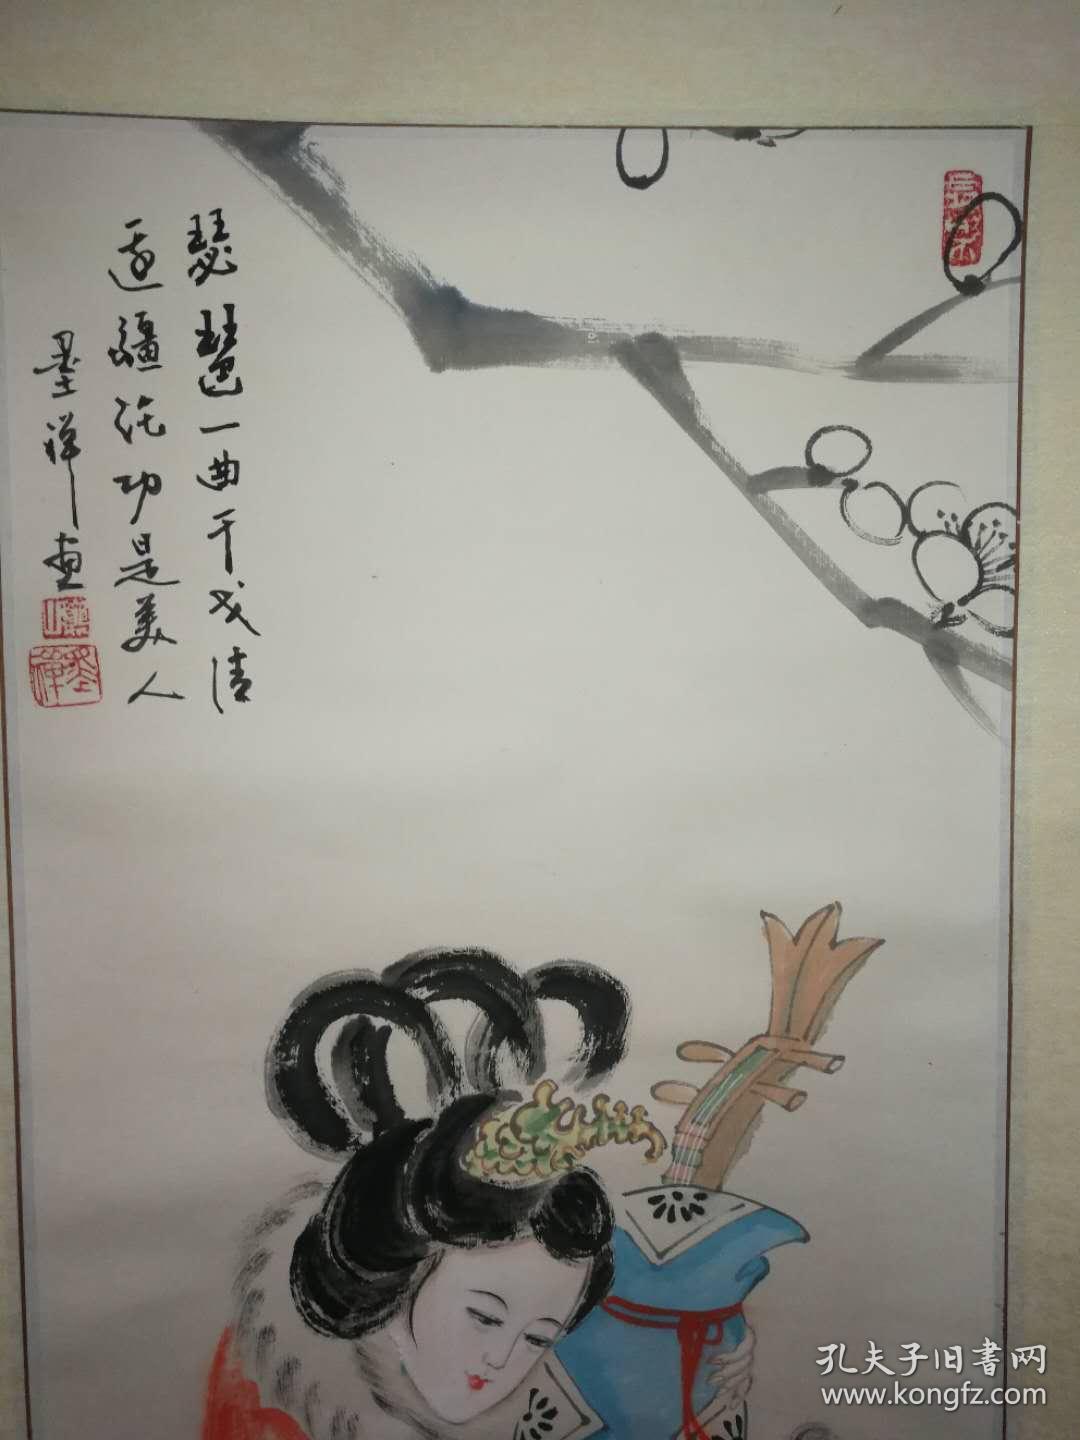 琵琶一曲干戈清
边疆论功是美人
墨禅画
孔夫子旧書网
www.kongfz.com